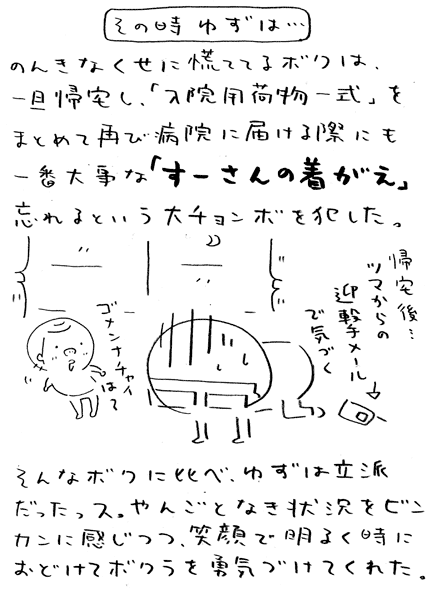 その時ゆずは…
のんきなくせに慌ててるボクは、
一旦帰宅し、「入院用荷物一式」を
まとめて再び病院に届ける際にも
一番大事な「すーさんの着がえ」
忘れるという大チョンボを犯した。
帰宅後…
ツマからの
迎撃手メール
で気づく
ゴメンナチャイ
はて
そんなボクに比べ、ゆずは立派
だったっス。やんごとなき状況をビン
カンに感じつつ、笑顔で明るく時に
おどけてボクラを勇気づけてくれた。